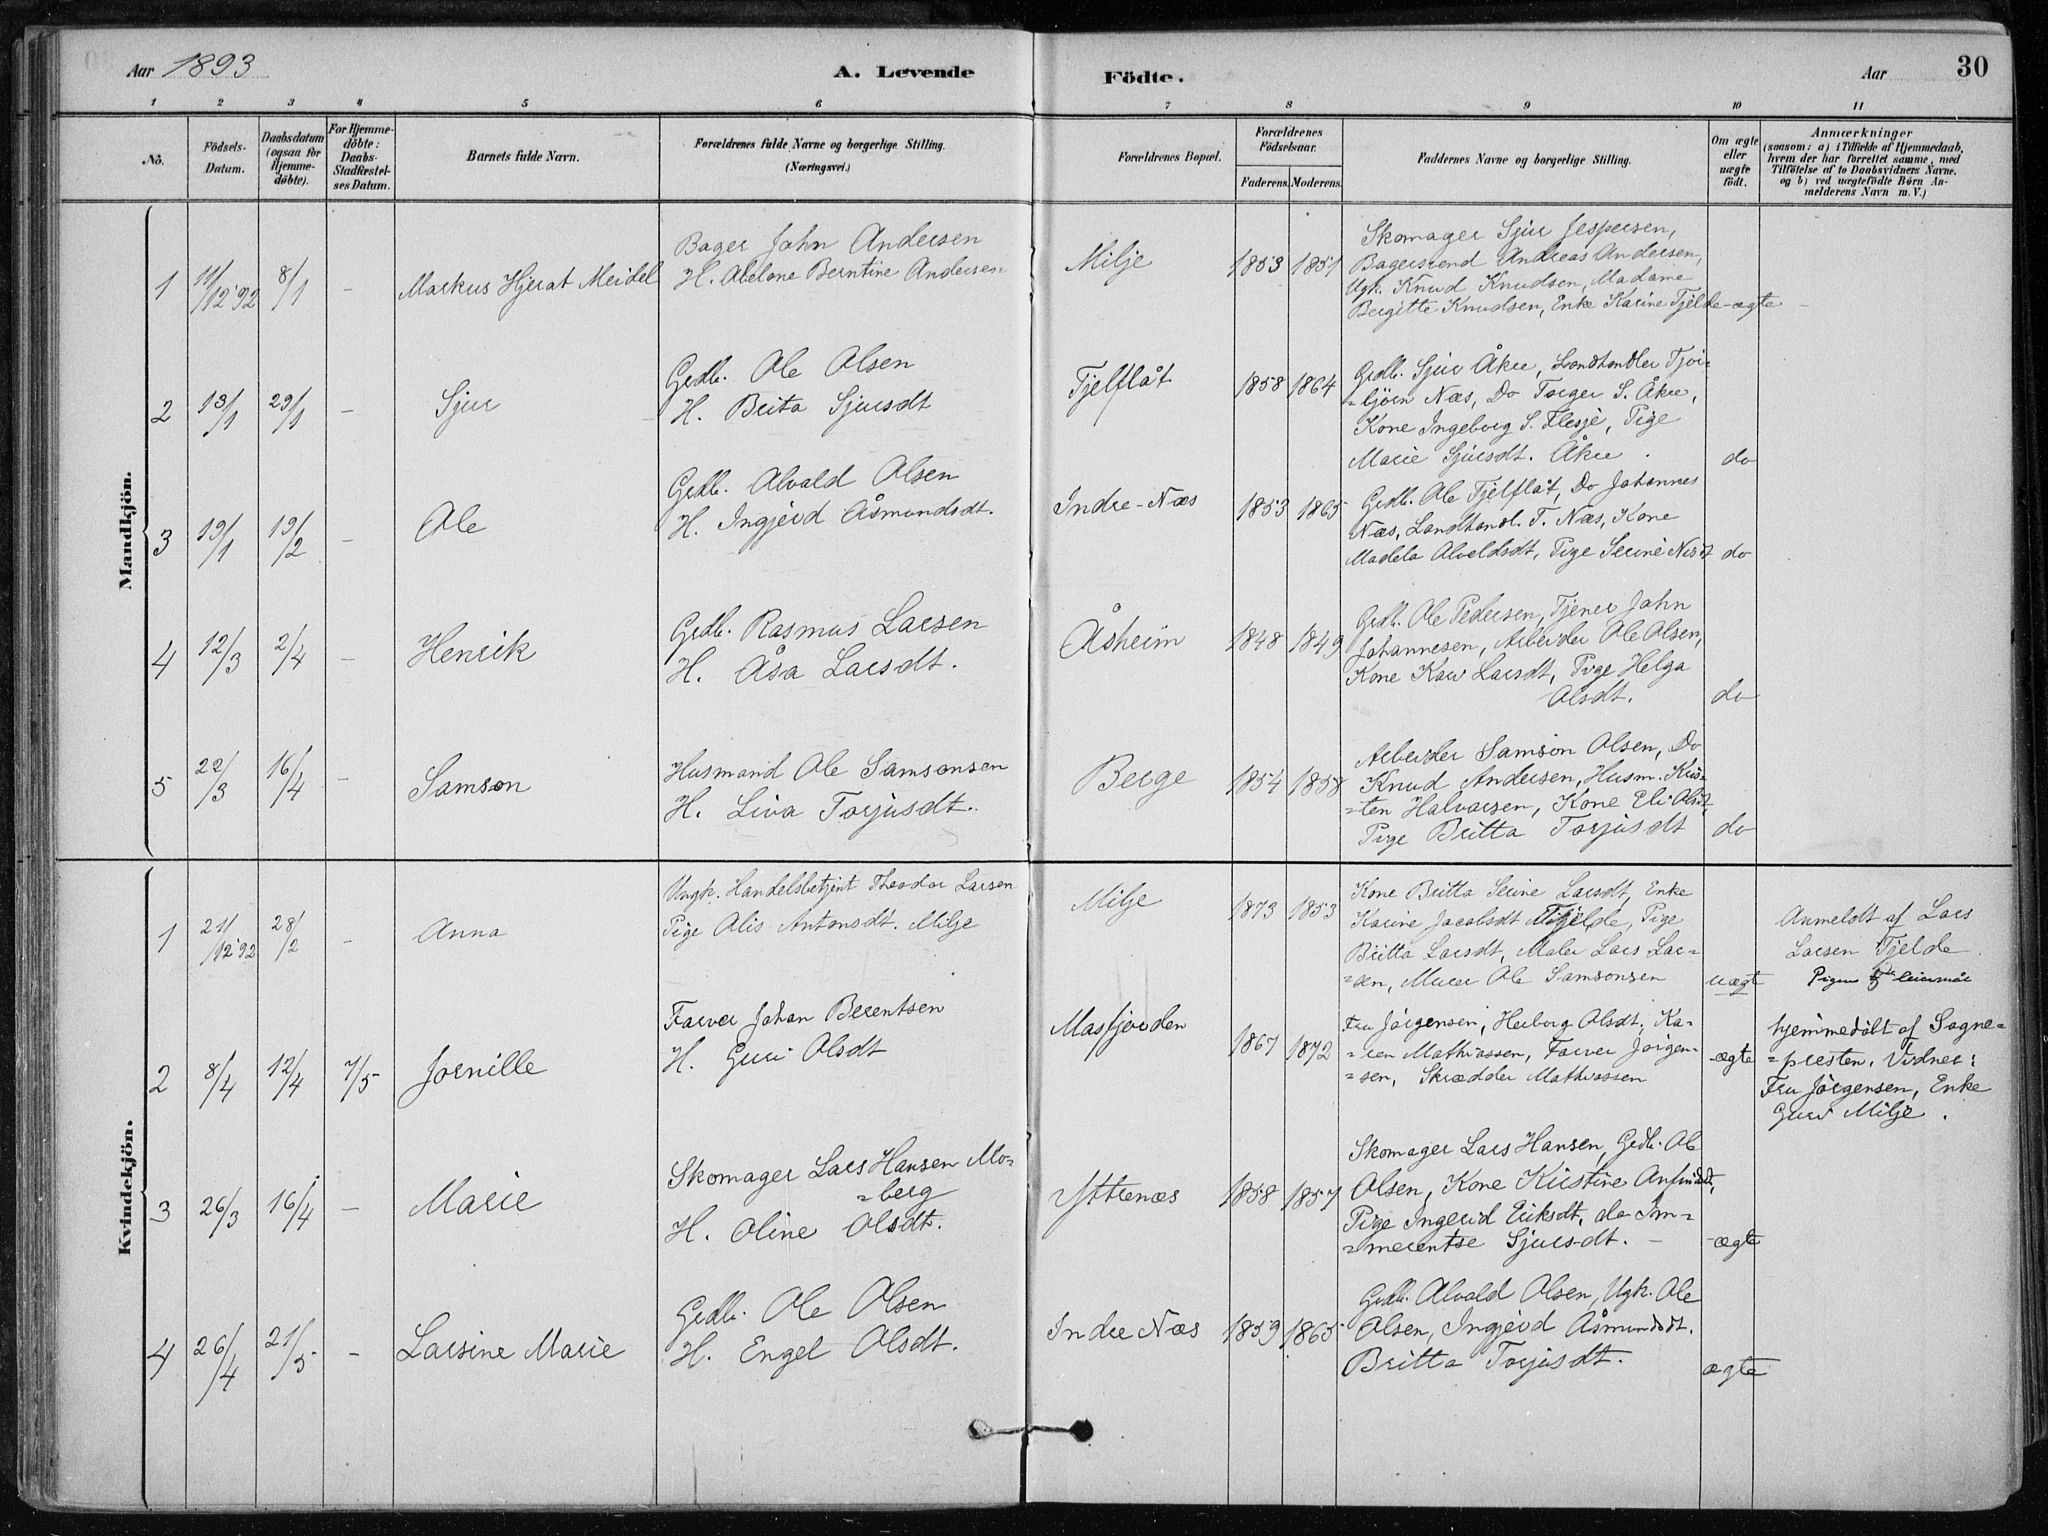 Aar 1893
A. Levende Födte.
Aar 30
1 2 3 4 5 6 7 8 9 10 11
No.
Födsels-Datum.
Daabsdatum (ogsaa for Hjemme-döbte).
For Hjemme-döbte: Daabs-Stadfæstel-ses Datum.
Barnets fulde Navn.
Forældrenes fulde Navne og borgerlige Stilling.
(Næringsvei.)
Forældrenes Bopæl.
Forældrenes Födselsaar.
Faderens. Moderens.
Faddernes Navne og borgerlige Stilling.
Om ægte eller uægte födt.
Anmærkninger
(saasom: a) i Tilfælde af Hjemmedaab,
hvem der har forrettet samme, med
Tilföielse af to Daabsvidners Navne.
og b) ved uægtefödte Börn An-
melderens Navn m. V.)
Mandkjön.
1 11/12 '92 8/1 - Markus Hjerat Meidel
Bager John Andersen
H. Abelone Berntine Andersen
Milje 1853 1851
Skomager Sjur Jespersen,
Bagersvend Andreas Andersen,
Ugk. Knud Knudsen, Madame
Bergitte Knudsen, Enke Karine Tjelde - ægte -
2 13/1 29/1 - Sjur
Grdb. Ole Olsen
H. Brita Sjursdt
Tjelflåt 1858 1864
Grdb. Sjur Åkre, Landhandler Tjor-
=björn Næs, Do Torger S. Åkre,
Kone Ingeborg S. Flesje, Pige
Marie Sjursdt. Åkre. do
3 19/1 19/2 - Ole
Grdb. Alvald Olsen
H. Ingjerd Åsmundsdt.
Indre-Næs 1853 1865
Grdb. Ole Tjelflåt, Do Johannes
Næs, Landhandl. T. Næs, Kone
Madela Alveldsdt, Pige Serine do
4 12/3 2/4 - Henrik
Grdb. Rasmus Larsen
H. Åsa Larsdt.
Åsheim 1848 1849
Grdb. Ole Pedersen, Tjener John
Johannesen, Arbeider Ole Olsen,
Kone Kari Larsdt, Pige Helga
Olsdt. do
5 22/3 16/4 - Samson
Husmand Ole Samsonsen
H. Liva Torjusdt.
Berge 1854 1858
Arbeider Samson Olsen, Do
Knud Andersen, Husm. Kris-
=ten Halvorsen, Kone Eli Olsdt,
Pige Britta Torjusdt do
Kvindekjön.
1 21/12 92 28/2 - Anna
Ungk. Handelsbetjent Theodor Larsen
Pige Alis Antonsdt. Milje
Milje 1873 1853
Kone Britta Serine Larsdt, Enke
Karine Jacobsdt Tjelde, Pige
Britta Larsdt, Maler Lars Lar-
=sen, Murer Ole Samsonsen uægte
Anmeldt af Lars
Larsen Tjelde.
Pigens leiermål
2 8/4 12/4 7/5 Jornille
Farver Johan Berentsen
H. Guri Olsdt
Masfjorden 1867 1872
Fru Jörgensen, Herborg Olsdt, Ka-
=ren Mathiassen, Farver Jörgen-
=sen, Skrædder Mathiassen - ægte
hjemmedöbt af Sogne=
=presten. Vidner:
Fru Jörgensen, Enke
Guri Milje.
3 26/3 16/4 - Marie
Skomager Lars Hansen Mo-
=berg
H. Oline Olsdt.
Yttrenæs 1858 1857
Skomager Lars Hansen, Grdb. Ole
Olsen, Kone Kristine Anfindsdt,
Pige Ingerid Eriksdt, do Im=
=merentse Sjursdt. - -ægte
4 26/4 21/5 - Larsine Marie
Grdb. Ole Olsen
H. Engel Olsdt.
Indre Næs 1859 1865
Grdb. Alvald Olsen, Ugk. Ole
Olsen, Ingjerd Åsmundsdt.
Britta Torjusdt. ægte